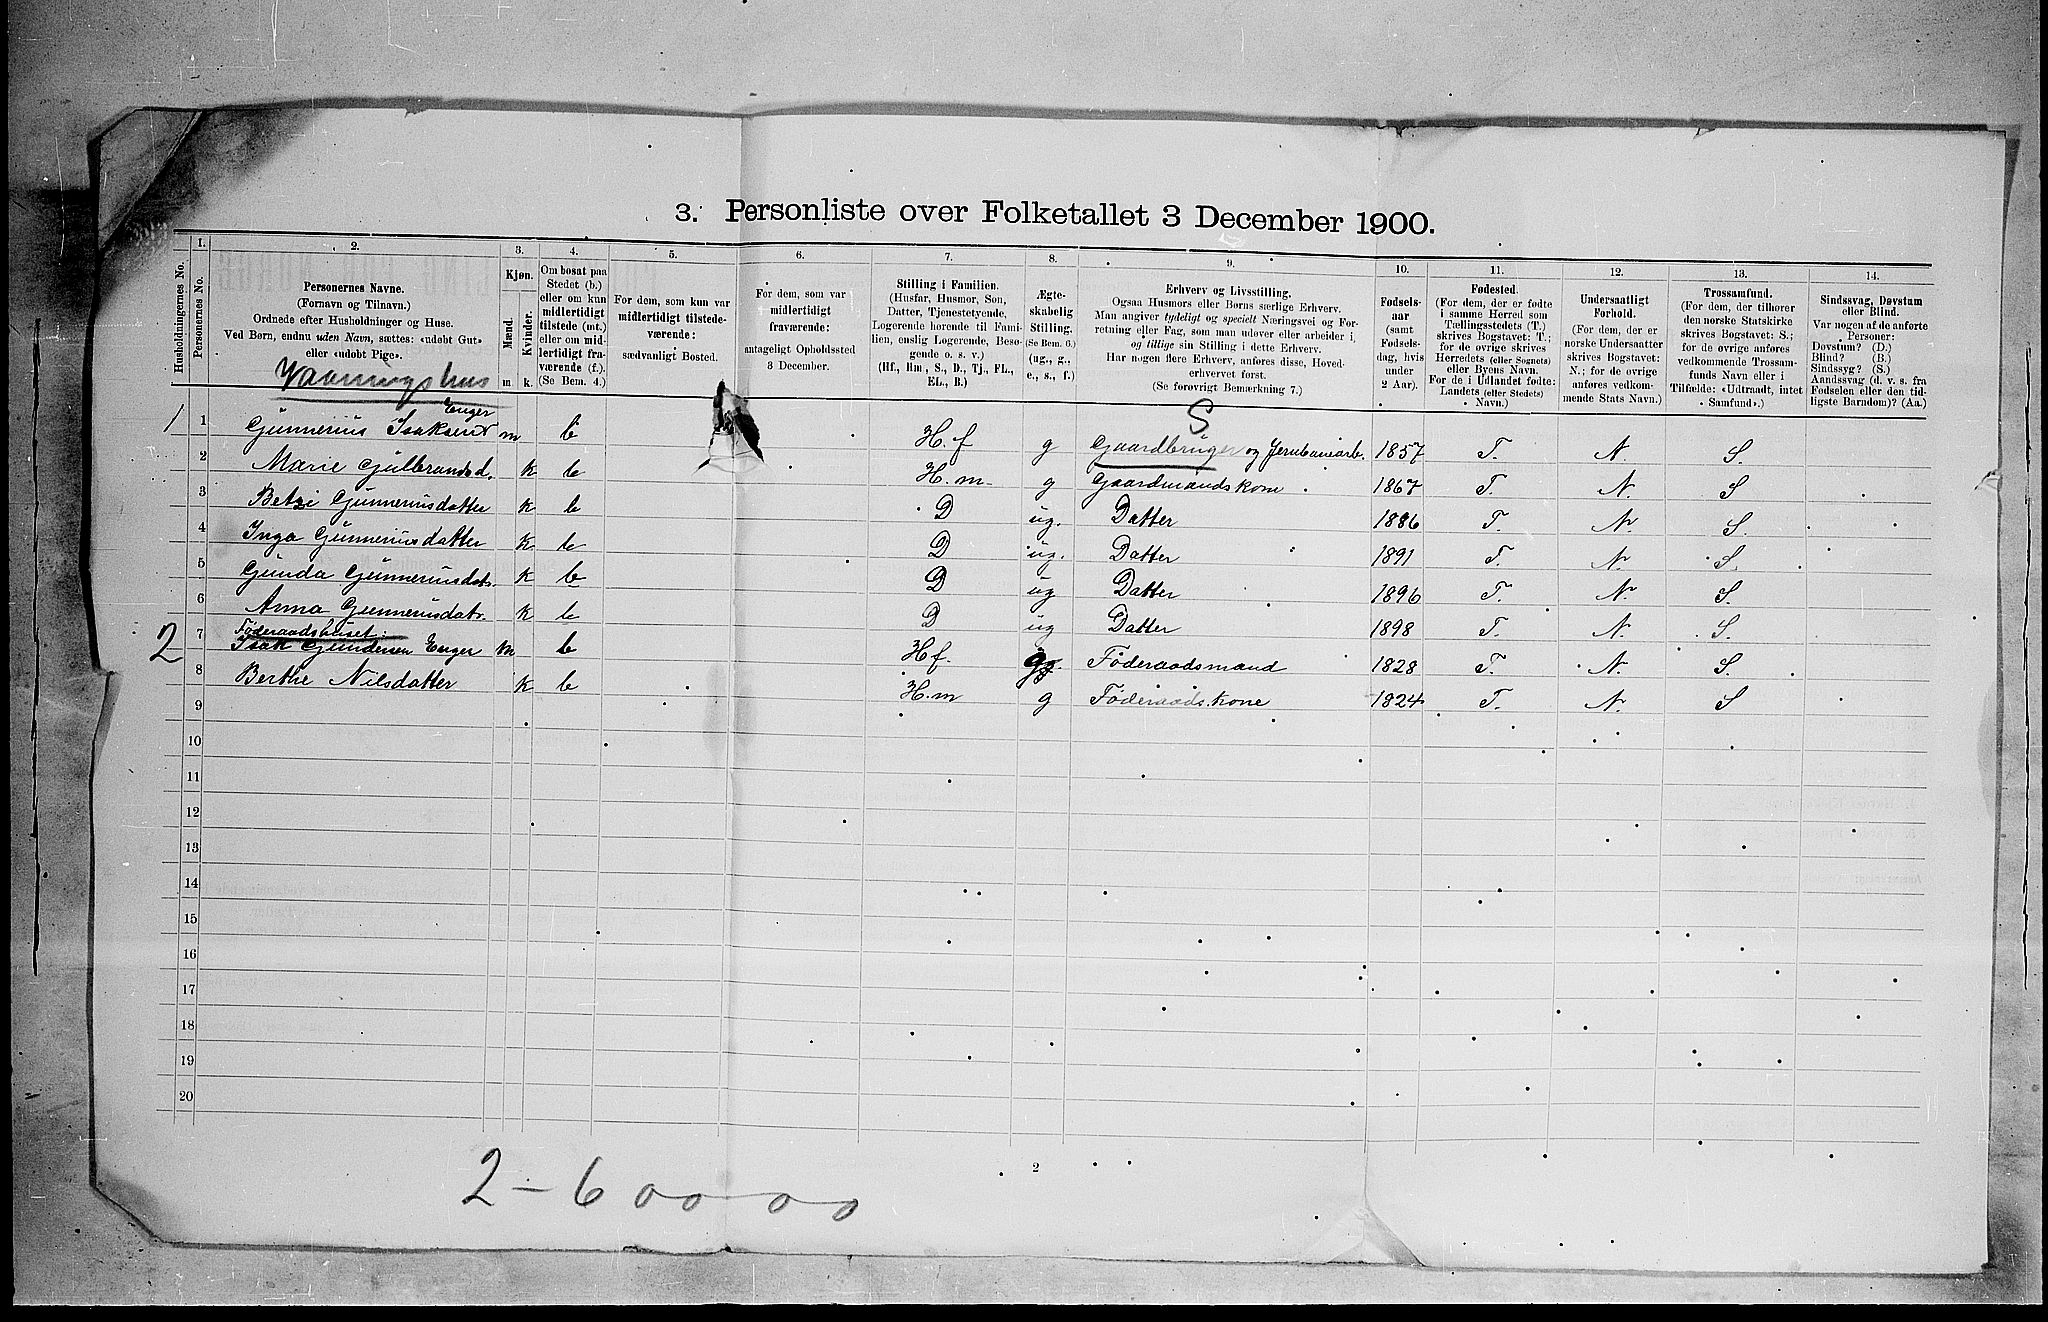 3. Personliste over Folketallet 3 December 1900.
Husholdningernes No.
1.
Personernes No.
2.
Personernes Navne.
(Fornavn og Tilnavn.)
Ordnede efter Husholdninger og Huse.
Ved Børn, endnu uden Navn, sættes: «udøbt Gut»
eller «udøbt Pige».
3.
Kjøn.
Mænd.
Kvinder.
m k.
4.
Om bosat paa
Stedet (b.)
eller om kun
midlertidigt
tilstede (mt.)
eller om mid-
lertidigt fra-
værende (f.).
(Se Bem. 4.)
5.
For dem, som kun var
midlertidigt tilstede-
værende:
sædvanligt Bosted.
6.
For dem, som var
midlertidigt
fraværende:
antageligt Opholdssted
3 December.
7.
Stilling i Familien.
(Husfar, Husmor, Søn,
Datter, Tjenestetyende,
Logerende hørende til Fami-
lien, enslig Logerende, Besø-
gende o. s. v.)
(Hf., Hm., S., D., Tj., FL.,
EL., B.)
8.
Ægte-
skabelig
Stilling.
(Se Bem. 6.)
(ug., g.,
e., s., f.)
9.
Erhverv og Livsstilling.
Ogsaa Husmors eller Børns særlige Erhverv.
Man angiver tydeligt og specielt Næringsvei og For-
retning eller Fag, som man udøver eller arbeider i,
og tillige sin Stilling i dette Erhverv.
Har nogen flere Erhverv, anføres disse, Hoved-
erhvervet først.
(Se forøvrigt Bemærkning 7.)
10.
Fødsels-
aar
(samt
Fødsels-
dag, hvis
under
2 Aar).
11.
Fødested.
(For dem, der er fødte
i samme Herred som
Tællingsstedets (T.)
skrives Bogstavet: T.;
for de øvrige skrives
Herredets (eller Sognets)
eller Byens Navn.
For de i Udlandet fødte:
Landets (eller Stedets)
Navn.)
12.
Undersaatligt
Forhold.
(For dem, der er
norske Undersaatter
skrives Bogstavet:
N.; for de øvrige
anføres vedkom-
mende Stats Navn.)
13.
Trossamfund.
(For dem, der tilhører
den norske Statskirke
skrives Bogstavet: S.;
for de øvrige anføres
vedkommende Trossam-
funds Navn eller i
Tilfælde: «Udtraadt, intet
Samfund».)
14.
Sindssvag, Døvstum
eller Blind.
Var nogen af de anførte
Personer:
Døvstum? (D.)
Blind? (B.)
Sindssyg? (S.)
Aandssvag (d. v. s. fra
Fødselen eller den tid-
ligste Barndom)? (Aa.)
Vaaningshus
S
1 1 Gunnerius Isaksen Enger m b H.f g Gaardbruger og Jernbanearb. 1857 T. N. S.
2 Marie Gulbrandsd. k b H.m g Gaardmandskone 1867 T. N. S
3 Betzi Gunneriusdatter k b D ug. Datter 1886 T. N. S.
4 Inga Gunneriusdatter k b D ug. Datter 1891 T. N. S.
5 Gunda Gunneriusdatr. k b D ug Datter 1896 T. N. S.
6 Anna Gunneriusdatr. k b D ug Datter 1898 T. N. S.
Føderaadshuset:
2 7 Isak Gundersen Enger m b Hf. g. Føderaadsmand 1828 T. N. S.
8 Berthe Nilsdatter k b H.m g Føderaadskone 1824 T. N. S
9
10
11
12
13
14
15
16
17
18
19
20
2
2 – 6 00 00